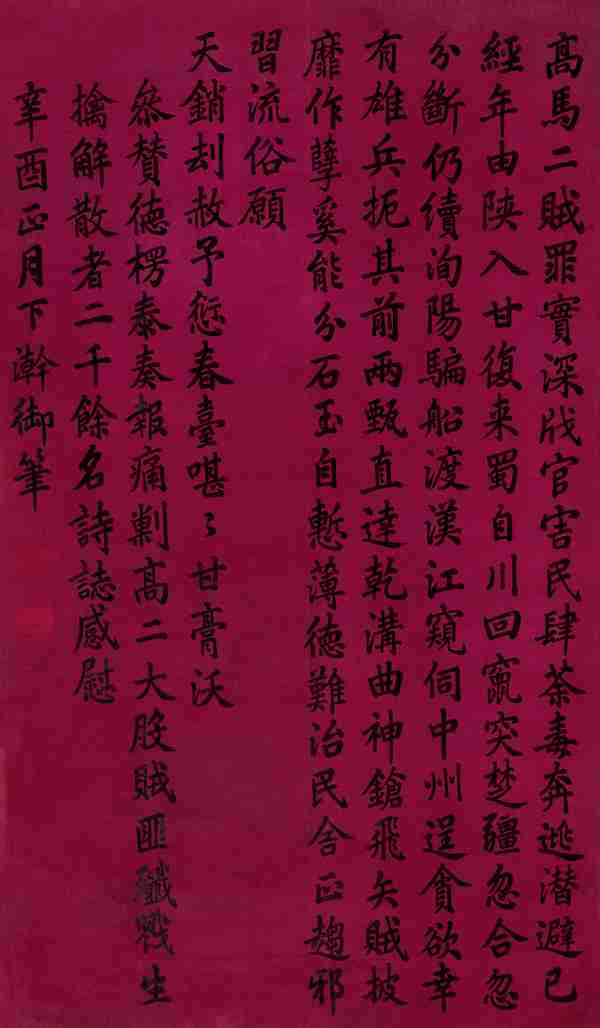 髙馬二賊罪實深戕官害民肆荼毒奔逃潛避已
經年由陝入甘復来蜀自川回竄突楚疆忽合忽
分斷仍續洵陽騙船渡漢江窺伺中州逞貪欲幸
有雄兵扼其前兩甄直達乾溝曲神鎗飛矢賊披
靡作孽奚能分石玉自慙薄徳難治民舍正趨邪
習流俗願
天銷刦赦予愆春臺啿〻甘膏沃
叅贊徳楞泰奏報痛剿髙二大股賊匪殲戮生
擒解散者二千餘名詩誌感慰
辛酉正月下澣御筆